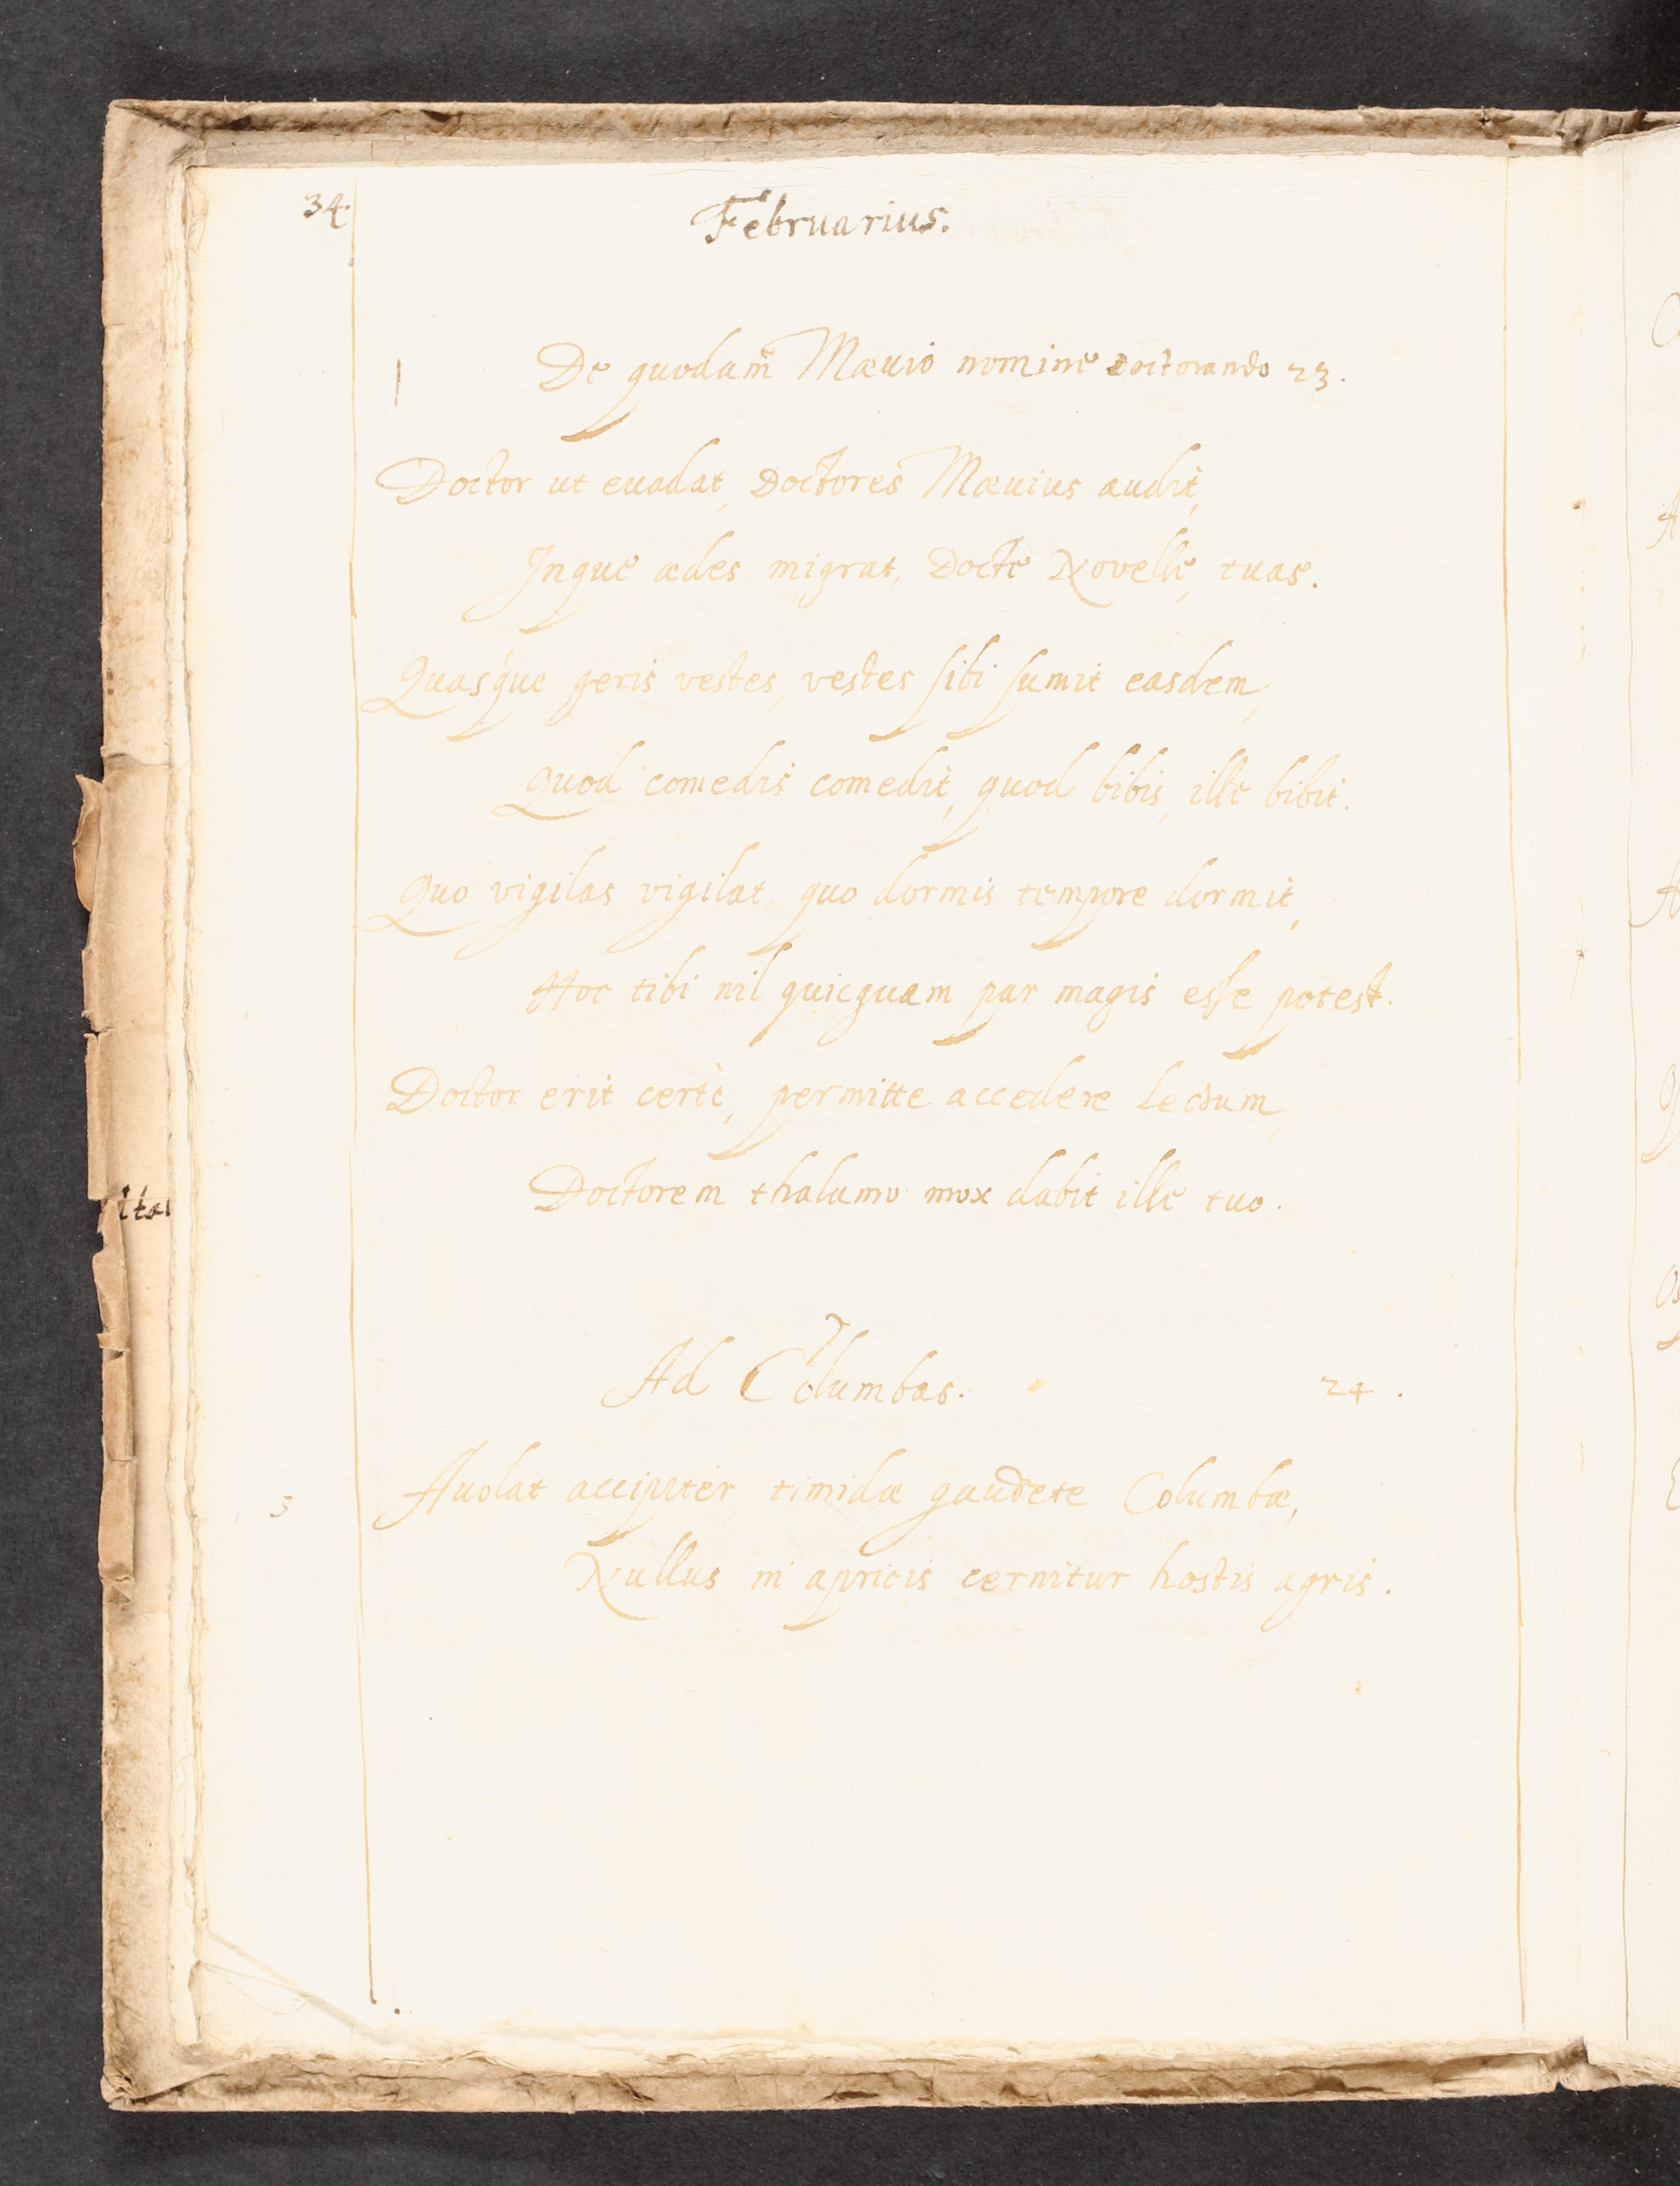 34.
Februarius.
De quodam Mæuio nomine Doctorando 23.
Doctor ut euadat, Doctores Mæuius audit,
Inque ædes migrat, Docte Novelle, tuas.
Quasque geris vestes, vestes sibi sumit easdem,
Quod comedis comedit, quod bibis, ille bibit.
Quo vigilas vigilat, quo dormis tempore dormit,
Hoc tibi nil quicquam par magis esse potest.
Doctor erit certè, permitte accedere lectum,
Doctorem thalamo mox dabit ille tuo.
Ad Columbas. 24.
5
Auolat accipiter, timidæ gaudete Columbæ,
Nullus in apricis cernitur hostis agris.